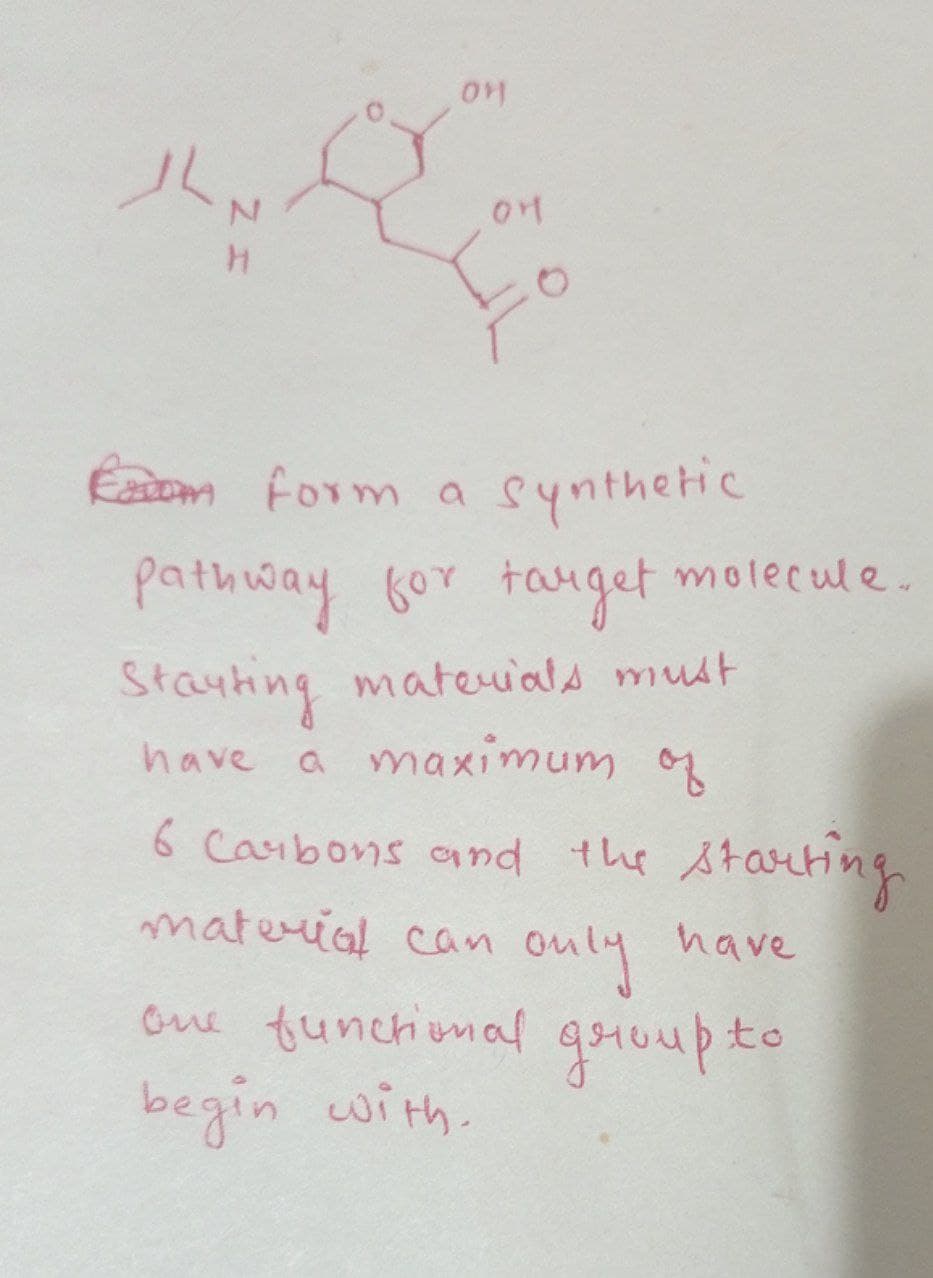 OH
O
N
H
OH
O
form a synthetic
pathway for target molecule.
Starting materials must
have a maximum of
6 Carbons and the starting
material can only have
one functional group to
begin with.